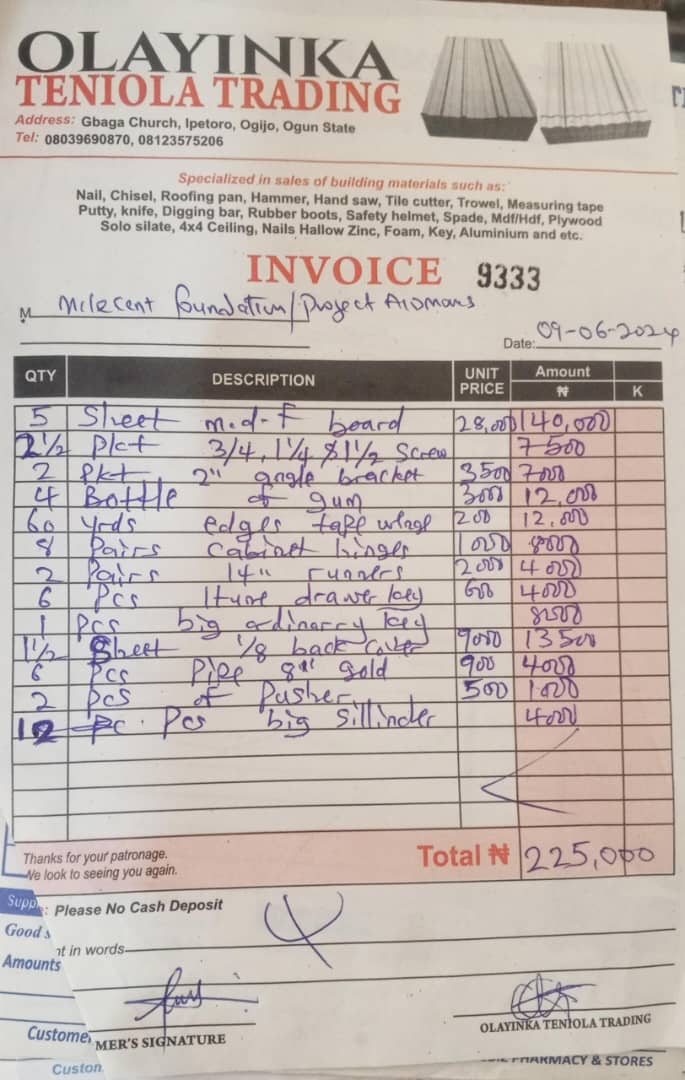 OLAYINKA
TENIOLA TRADING
Address: Gbaga Church, Ipetoro, Ogijo, Ogun State
Tel: 08039690870, 08123575206
Specialized in sales of building materials such as:
Nail, Chisel, Roofing pan, Hammer, Hand saw, Tile cutter, Trowel, Measuring tape
Putty, knife, Digging bar, Rubber boots, Safety helmet, Spade, Mdf/Hdf, Plywood
Solo silate, 4x4 Ceiling, Nails Hallow Zinc, Foam, Key, Aluminium and etc.
INVOICE 9333
M Milecent foundation/Project
Date: 09-06-2024
QTY DESCRIPTION UNIT PRICE Amount ₦ K
5 Sheet m.d-F board 28,000 140,000
2 1/2 Pkt 3/4, 1 1/4 & 1 1/2 Screw 7500
2 Pkt 2" angle bracket 3500 7000
4 Bottle of gum 3000 12,000
60 yrds edges tape 200 12,000
8 Pairs cabinet hinges 1000 8000
2 Pairs 14" runners 2000 4000
6 Pcs drawer key 600 4000
1 Pcs big ordinarry key
1 1/2 Sheet 1/8 back cover 9000 13500
6 Pcs Pipe gold 900 4000
2 Pcs of Pusher 500 1000
Pcs big Sillinder 4000
Thanks for your patronage.
We look to seeing you again.
Total ₦ 225,000
Supp : Please No Cash Deposit
Good s
nt in words
Amounts
Custome MER'S SIGNATURE
OLAYINKA TENIOLA TRADING
Custon
PHARMACY & STORES